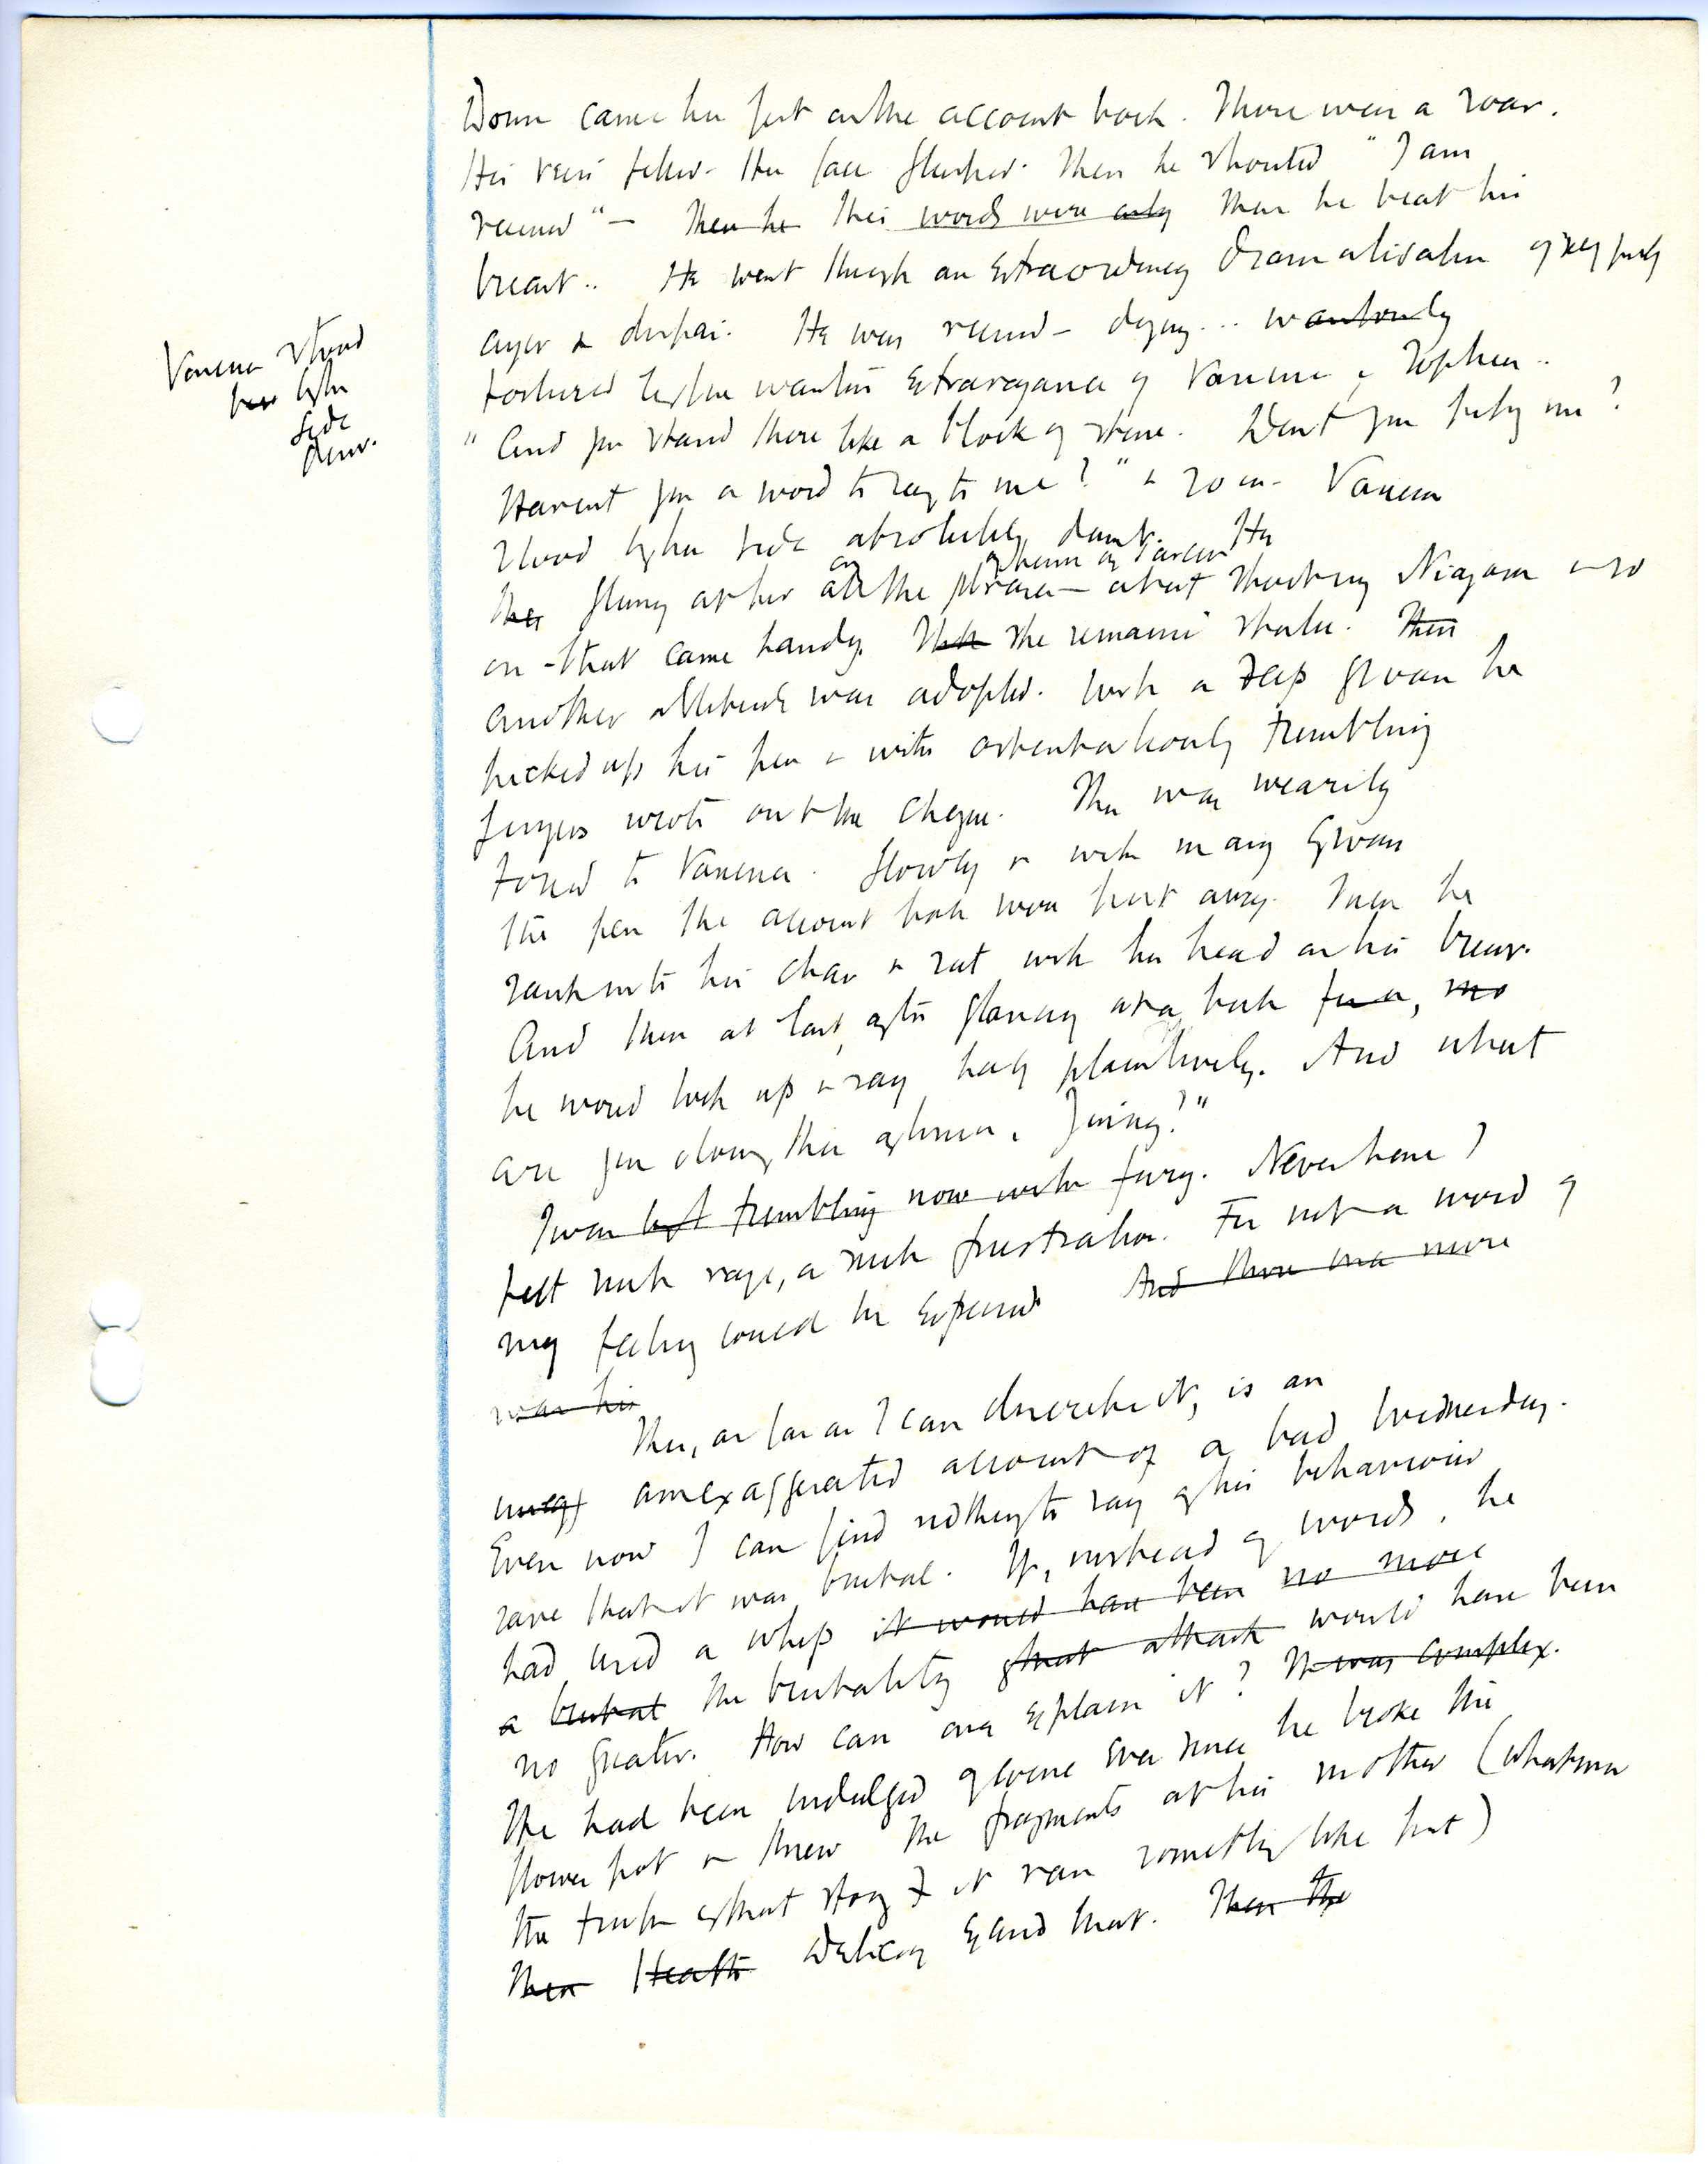 Down came his fist on the account book. There was a roar.
His veins filled. His face flushed. Then he shouted "I am
ruined" — Then he This words were only Then he beat his
breast.. He went through an extraordinary dramatisation of self pity
anger & despair. He was ruined — dying... wantonly
tortured by the wanton extravagance of Vanessa & Sophia..
"And you stand there like a block of stone. Don't you pity me?
Havent you a word to say to me?" & so on — Vanessa
stood by his side absolutely dumb. He
flung at her all the phrases — about shooting Niagara & so
on — that came handy. She remained static. Then
another attitude was adopted. With a deep groan he
picked up his pen & with ostentatiously trembling
fingers wrote out the cheque. This was wearily
tossed to Vanessa. Slowly & with many groans
the pen the account book were put away. Then he
sank into his chair & sat with his head on his breast.
And then at last, after glancing at a book for a, mo
he would look up & say half plaintively. And what
are you doing this afternoon, Jinny?"
I was left trembling now with fury. Never have I
felt such rage, & such frustration. For not a word of
my feeling could be expressed And there was more
was his
This, as far as I can describe it, is an
unexaggerated account of a bad Wednesday.
Even now I can find nothing to say of his behaviour
save that it was brutal. If, instead of words, he
had used a whip it would have been no more
a brutal the brutality of that attack would have been
no greater. How can one explain it? It was complex.
He had been indulged of course ever since he broke the
flower pot & threw the fragments at his mother (whatever
the truth of that story it ran something like that)
Then Health Delicacy excused that. Then the
Vanessa stood
here by his
side
dumb.